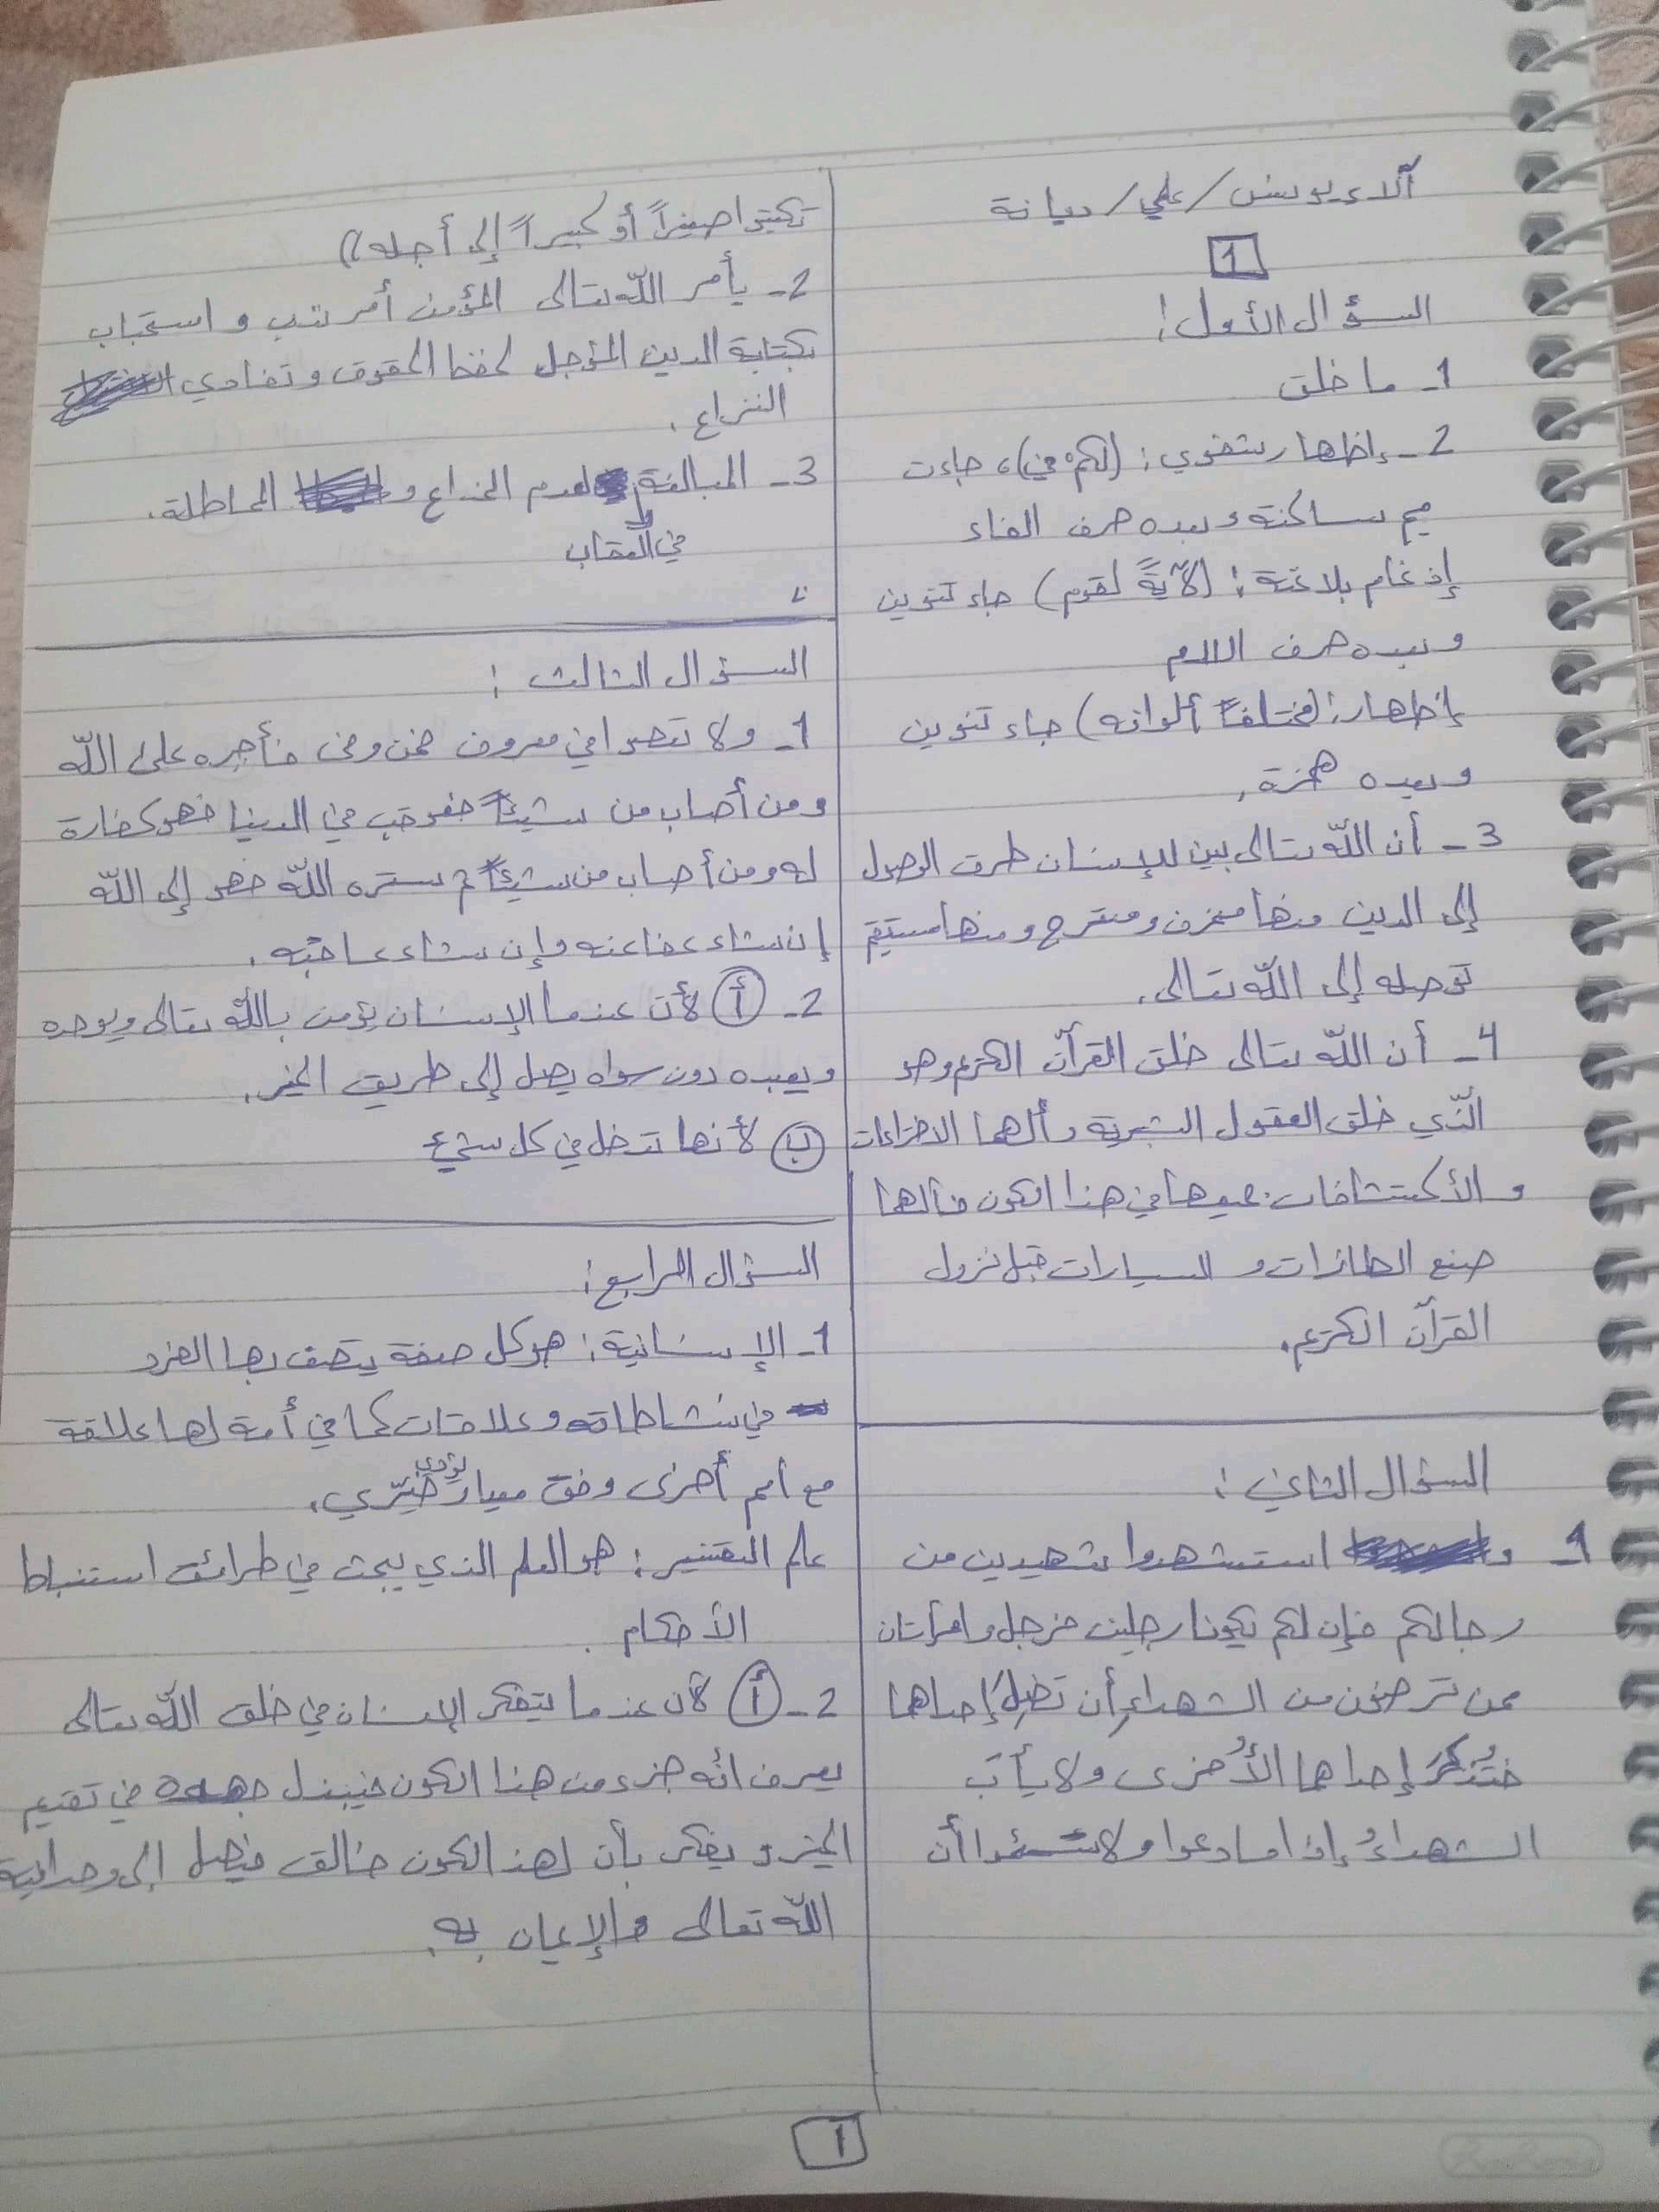 آلاء يونس / علمي / ديانة
1
السؤال الأول:
1- ما خلق
2- إظهار شفوي: (لكم في)، جاءت
ميم ساكنة وبعده حرف الفاء
إدغام بلاغنة: (لآيةً لقوم) جاء تنوين
وبعده حرف اللام
إظهار: (مختلفاً ألوانه) جاء تنوين
وبعده همزة.
3- أن الله تعالى بين للإنسان طرق الوصول
إلى الدين منها منحرف ومتعرج ومنها مستقيم
توصله إلى الله تعالى.
4- أن الله تعالى خلق القرآن الكريم وهو
الّذي خلق العقول البشرية وألهما الاختراعات
والأكتشافات جميعها في هذا الكون فألهما
صنع الطائرات و السيارات قبل نزول
القرآن الكريم.
السؤال الثاني:
1- و استشهدوا شهيدين من
رجالكم فإن لم يكونا رجلين فرجل وامرأتان
ممن ترضون من الشهداءِ أن تضل إحداهما
فتُذكرَ إحداهما الأُخرى ولا يأبَ
الشهداءُ إذا ما دعوا ولا تسئموا أن
تكتبوا صغيراً أو كبيراً إلى أجله))
2- يأمر الله تعالى المؤمن أمر ندب و استحباب
بكتابة الدين المؤجل لحفظ الحقوق وتفادي
النزاع.
3- المبالغة لعدم الخداع و المماطلة.
في العقاب
السؤال الثالث:
1- ولا تعصوا في معروف فمن وفى فأجره على الله
ومن أصاب من شيئاً فعوقب في الدنيا فهو كفارة
له ومن أصاب من شيئاً ثم ستره الله فهو إلى الله
إن شاء عفا عنه وإن شاء عاقبه.
2- أ لأن عندما الإنسان يؤمن بالله تعالى ويوحده
ويعبده دون سواه يصل إلى طريق الخير.
ب لأنها تدخل في كل شيء
السؤال الرابع:
1- الإنسانية: هو كل صفة يتصف بها الفرد
في نشاطاته وعلاقات كما في أمة لها علاقة
مع أمم أخرى وفق معيار خيّري.
علم التفسير: هو العلم الذي يبحث في طرائق استنباط
الأحكام.
2- أ لأن عندما يتفكر الإنسان في خلق الله تعالى
يعرف انّه جزء من هذا الكون فيبذل جهده في تقديم
الخير و يفكر بأن لهذ الكون خالق فيصل إلى وحدانية
الله تعالى والإيمان به.
1